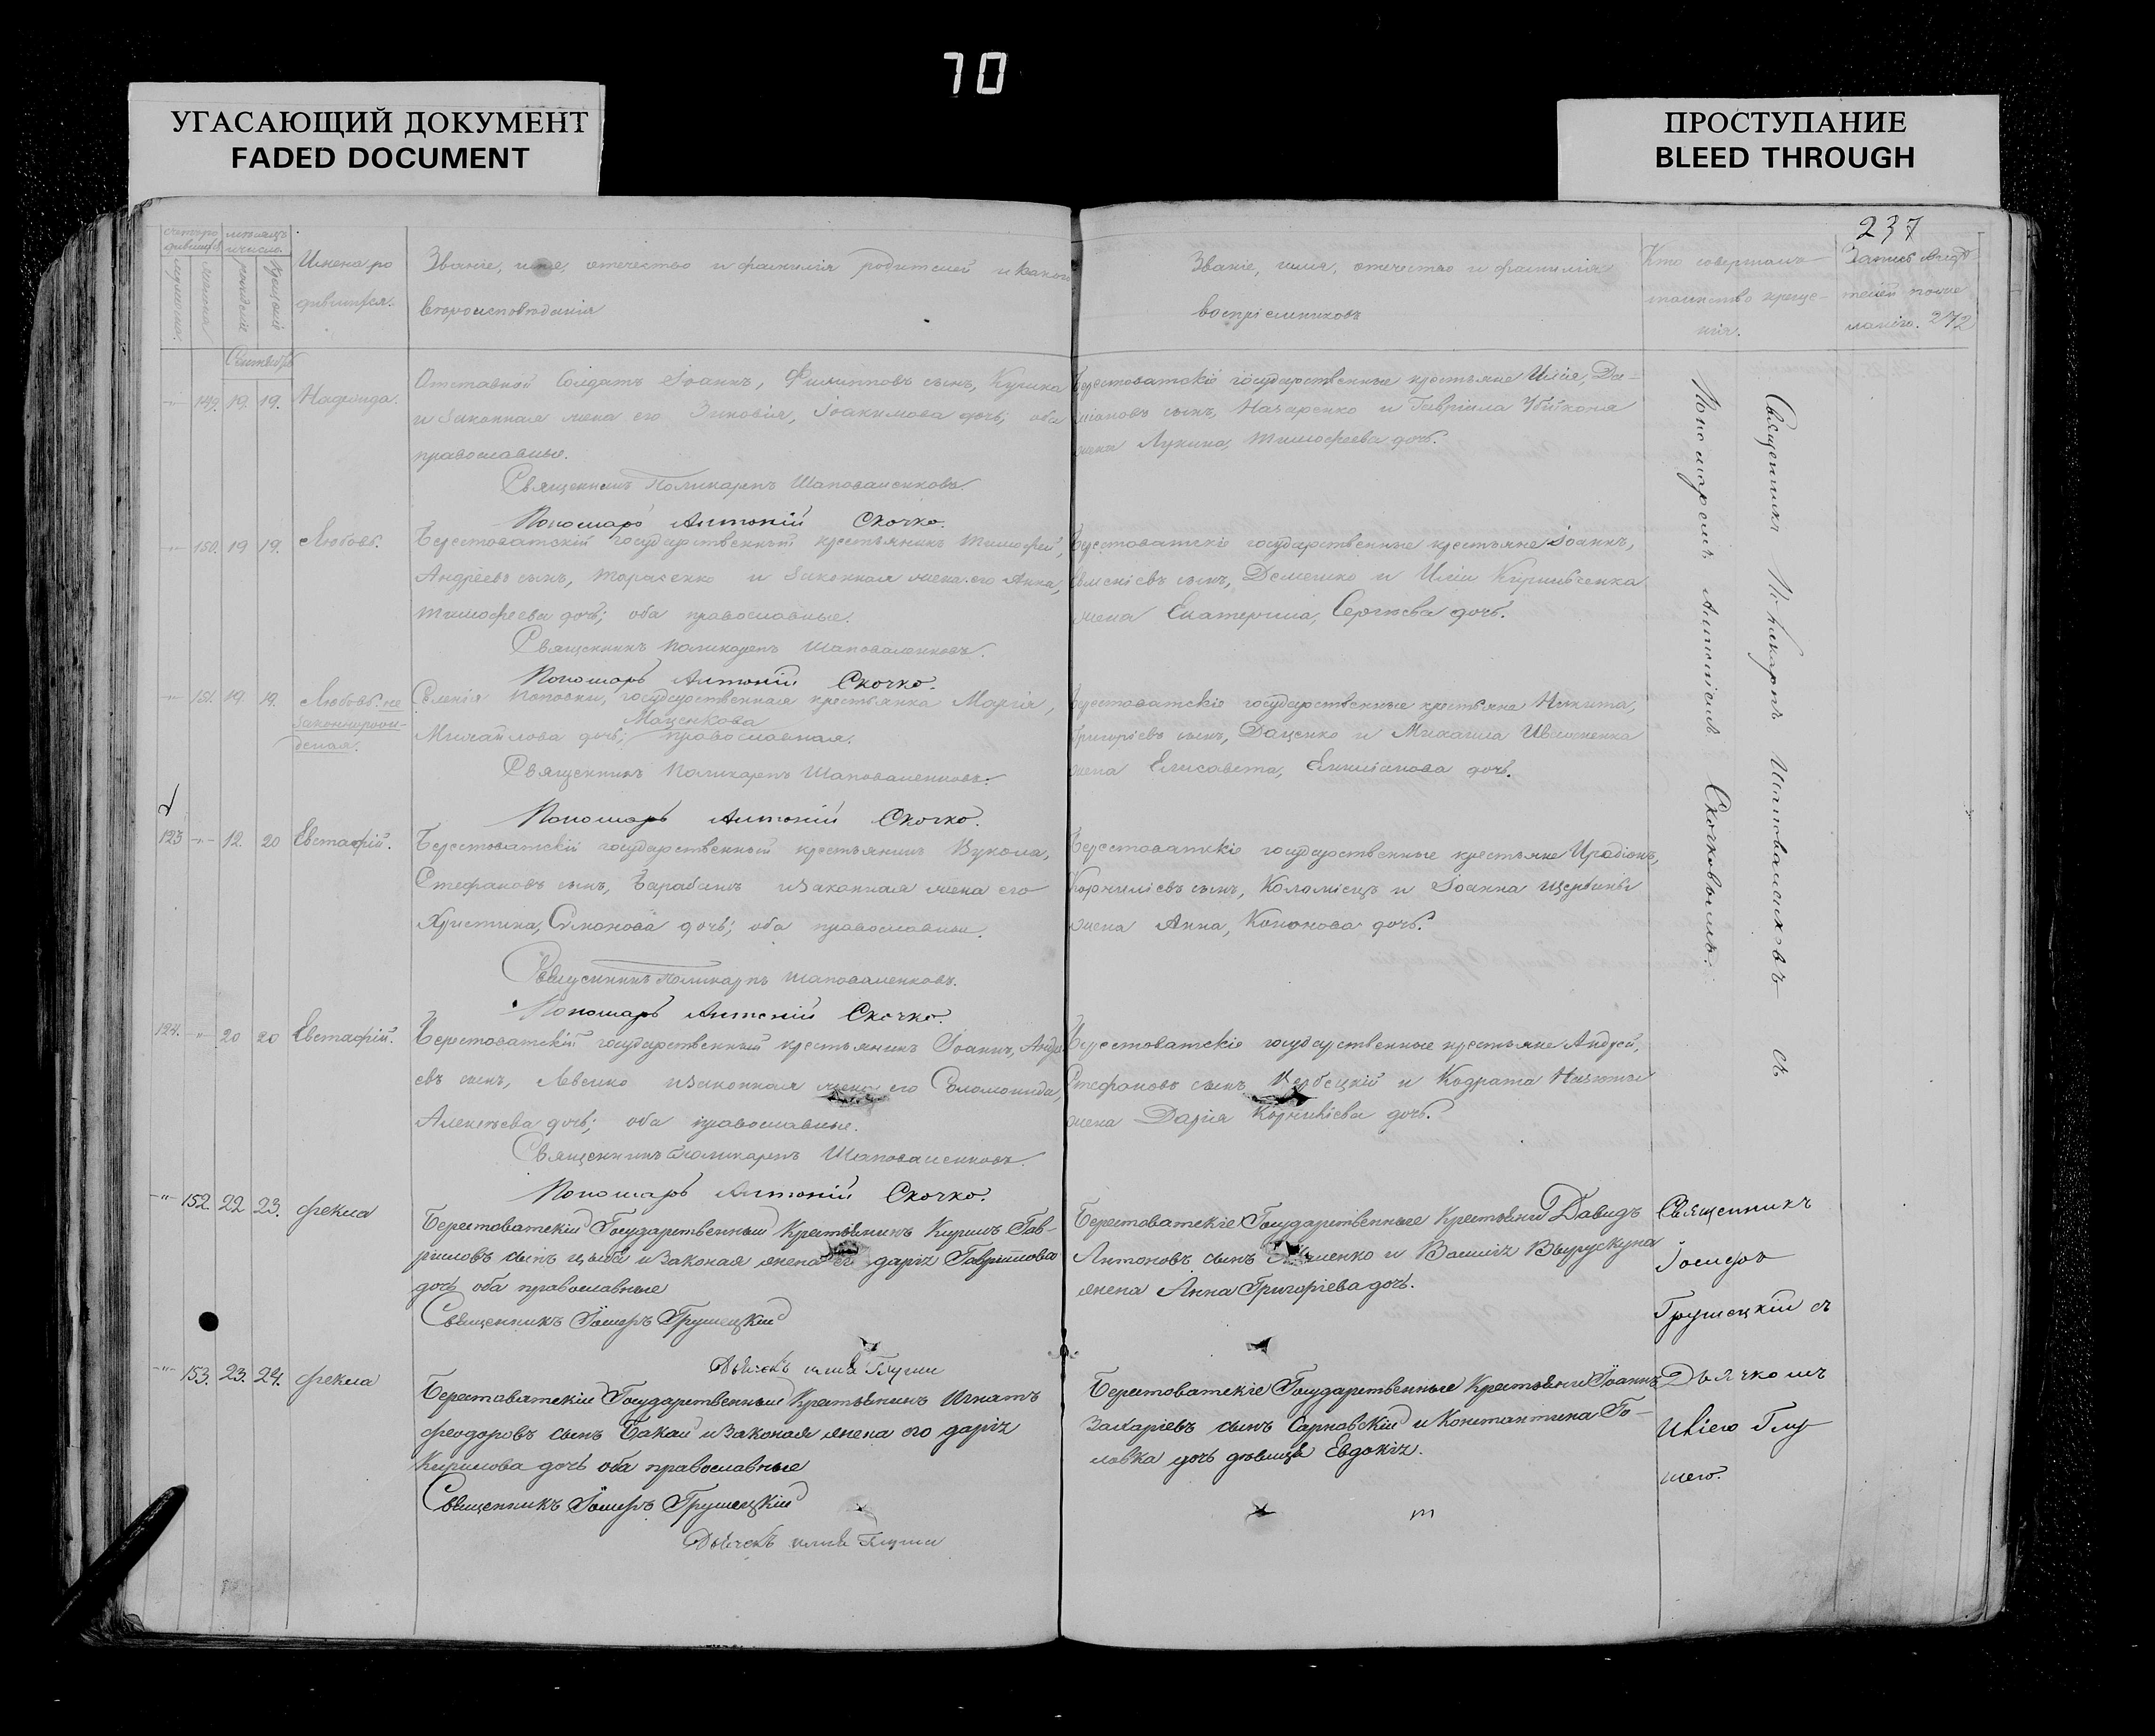 70
УГАСАЮЩИЙ ДОКУМЕНТ
FADED DOCUMENT
ПРОСТУПАНИЕ
BLEED THROUGH
237
мѣсяцъ
и число.
Имена ро
дившихся.
Званіе, имя, отечество и фамилія родителей и какого
вѣроисповѣданія
Званіе, имя, отечество и фамилія
воспріемниковъ
Кто совершалъ
таинство креще-
нія.
272
Сентябрь
149. 19. 19. Надежда.
Отставной Солдатъ Іоаннъ, Филипповъ сынъ, Кулика
и законная жена его Зиновія, Іоакимова дочь; оба
православные.
Священникъ Поликарпъ Шаповаленковъ.
Пономарь Антоній Скочко.
Берестоватскіе государственные крестьяне Илія, Да-
міановъ сынъ, Назаренко и Гавріила
жена Лукина, Тимофеева дочь.
150. 19 19. Любовь.
Берестоватскій государственный крестьянинъ Тимофей,
Андреевъ сынъ, Тарасенко и законная жена его Анна,
Тимофеева дочь; оба православные.
Священникъ Поликарпъ Шаповаленковъ.
Пономарь Антоній Скочко.
Берестоватскіе государственные крестьяне Іоаннъ,
сынъ, Демешко и Иліи Кириченка
жена Екатерина, Сергѣева дочь.
151. 19. 19. Любовь. не
законнорож-
денная.
Селенія Поповки, государственная крестьянка Марія,
Маценкова
Михайлова дочь; православная.
Священникъ Поликарпъ Шаповаленковъ.
Пономарь Антоній Скочко.
Берестоватскіе государственные крестьяне Никита,
Григоріевъ сынъ, Даценко и Михаила Ивашенка
жена Елисавета, дочь.
123 -"- 12. 20 Евстафій.
Берестоватскій государственный крестьянинъ Вукола,
Стефановъ сынъ, Барабашъ и законная жена его
Христина, Симонова дочь; оба православные.
Священникъ Поликарпъ Шаповаленковъ.
Пономарь Антоній Скочко.
Берестоватскіе государственные крестьяне Иродіонъ,
Корниліевъ сынъ, Коломіецъ и Іоанна Щербины
жена Анна, Кононова дочь.
124. -"- 20 20 Евстафій.
Берестоватскій государственный крестьянинъ Іоаннъ, Андре
евъ сынъ, Левенко и законная жена его Соломонида,
Алексѣева дочь; оба православные.
Священникъ Поликарпъ Шаповаленковъ.
Пономарь Антоній Скочко.
Берестоватскіе государственные крестьяне Андрей,
Стефановъ сынъ Вербецкій и Кодрата
жена Дарія Корниліева дочь.
Священникъ Поликарпъ Шаповаленковъ съ
Пономаремъ Антоніемъ Скочковымъ.
-"- 152. 22 23. Фекла
Берестоватскій Государственный Крестьянинъ Кирилъ Гав-
риловъ сынъ Цыба и законая жена его дарія Гавріилова
дочь оба православные
Священникъ Іосифъ Грушецкій
Дьячекъ Илія Глущи
Берестоватскіе Государственные Крестьяни Давидъ
Антоновъ сынъ и Василія Вырускупа
жена Анна Григоріева дочь.
Священникъ
Іосифъ
Грушецкій съ
Дьячкомъ
Иліею Глу
-"- 153. 23. 24. Фекла
Берестоватскій Государственный Крестьянинъ Игнатъ
Феодоровъ сынъ Бакай и законая жена его дарія
Кирилова дочь оба православные
Священникъ Іосифъ Грушецкій
Дьячекъ Илія Глущи
Берестоватскіе Государственные Крестьяни Іоаннъ
Захаріевъ сынъ Сарнавскій и Константина Го-
ловка дочь дѣвица Евдокія.